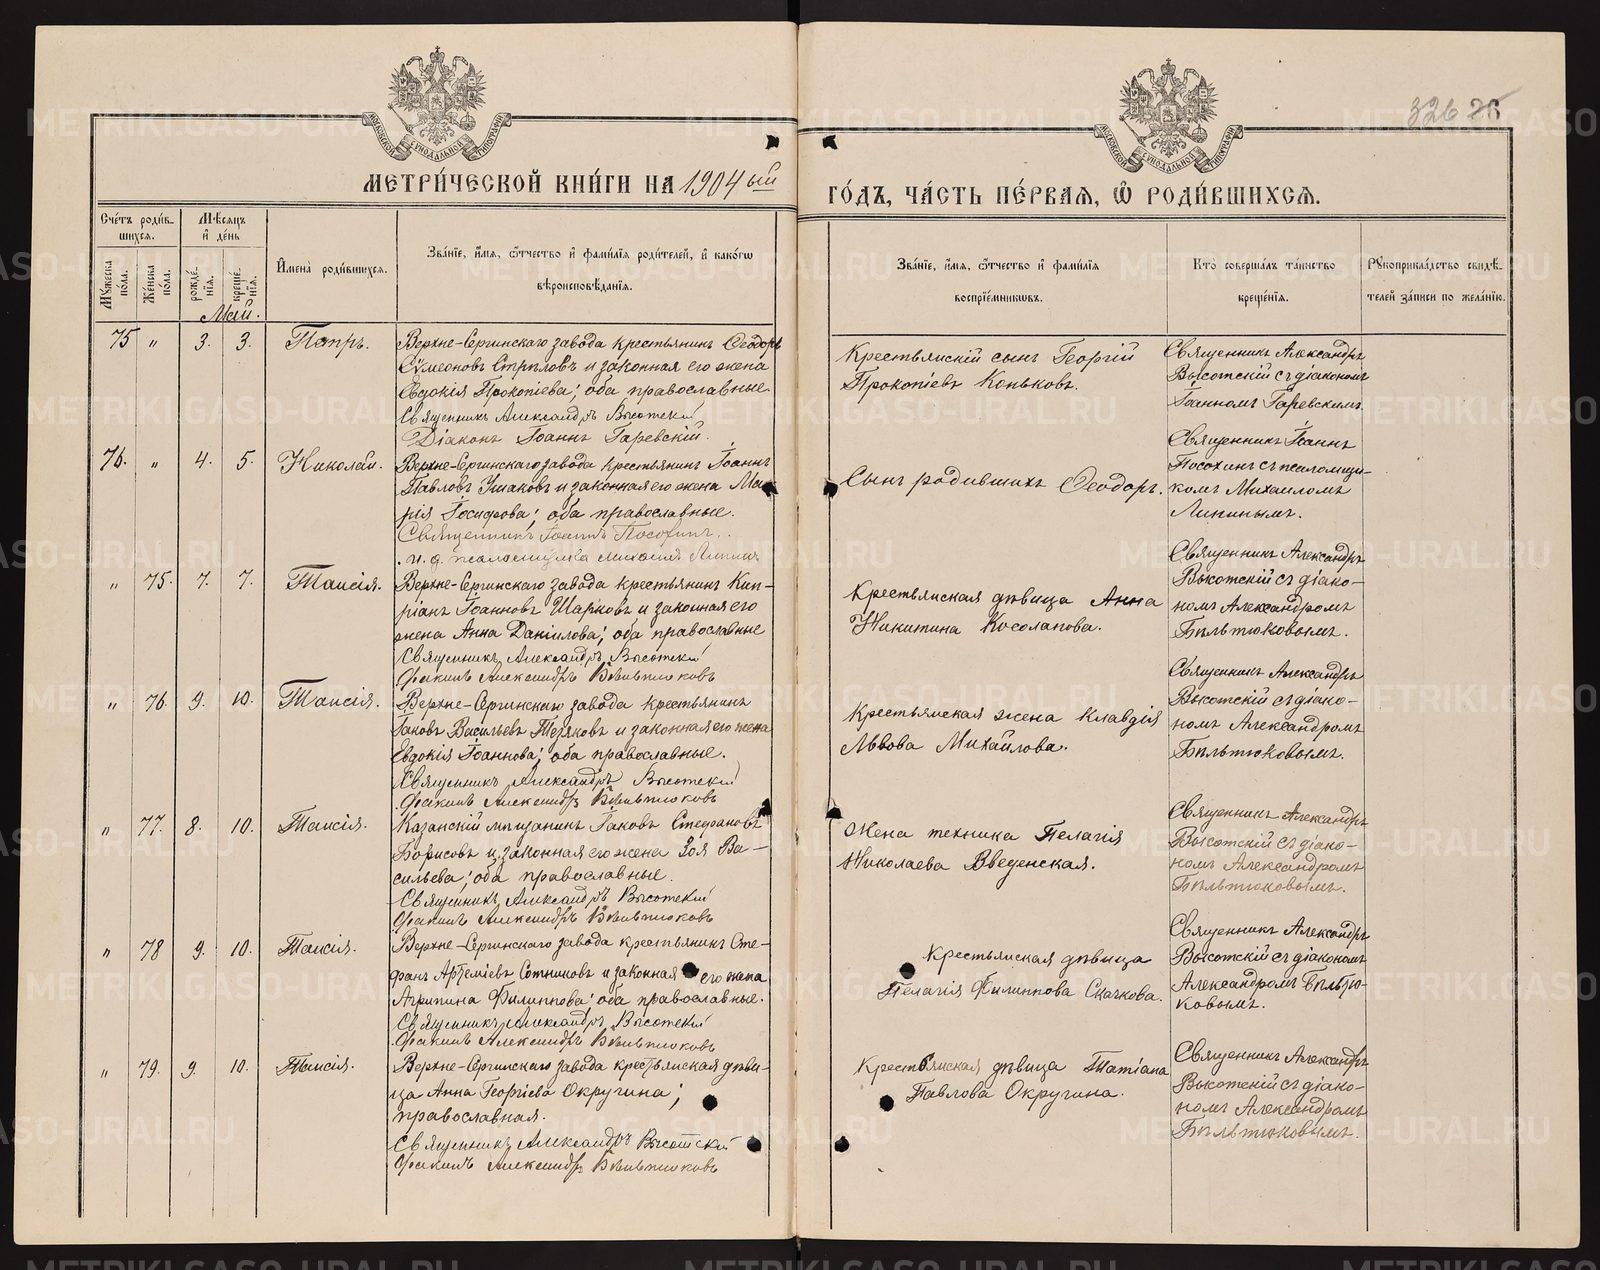 326 26
МЕТРИ́ЧЕСКОЙ КНИ́ГИ НА 1904 ый
ГО́ДЪ, ЧА́СТЬ ПЕ́РВАѦ, Ѡ҆ РОДИ́ВШИХСѦ.
Сче́тъ роди́в-
шихся.
Мѣсяцъ
и҆ де́нь
Мꙋжеска по́ла.
Же́нска по́ла.
рожде́-
нїя.
креще́-
нїя.
И҆мена̀ роди́вшихся.
Зва́нїе, и҆́мя, ѻ҆́тчество и҆ фами́лїя роди́телей, и҆ како́гѡ
вѣроисповѣ́данїя.
Зва́нїе, и҆́мя, ѻ҆́тчество и҆ фами́лїя
воспрїе́мникѡвъ.
Кто̀ соверша́лъ та́инство
креще́нїя.
Рꙋкоприкла́дство свидѣ́-
телей за́писи по жела́нїю.
Май.
75 " 3. 3. Петръ.
Верхне-Сергинскаго завода крестьянинъ Ѳеодоръ
Сѵмеоновъ Стрпловъ и законная его жена
Евдокія Прокопіева; оба православные.
Священникъ Александръ Высотскій
Діаконъ Іоаннъ Гаревскій.
Крестьянскій сынъ Георгій
Прокопіевъ Коньковъ.
Священникъ Александръ
Высотскій съ діакономъ
Іоанномъ Гаревскимъ.
76. " 4. 5. Николай.
Верхне-Сергинскаго завода крестьянинъ Іоаннъ
Павловъ Ушаковъ и законная его жена Ма-
рія Іосифова; оба православные.
Священникъ Іоаннъ Посохинъ.
и. д. псаломщика Михаилъ Липин
Сынъ родившихъ Ѳеодоръ.
Священникъ Іоаннъ
Посохинъ съ псаломщи-
комъ Михаиломъ
Липинымъ.
" 75. 7. 7. Таисія.
Верхне-Сергинскаго завода крестьянинъ Кип-
ріанъ Іоанновъ Шарковъ и законная его
жена Анна Даніилова; оба православные
Священникъ Александръ Высотскій
Діаконъ Александръ Бѣльтюковъ
Крестьянская дѣвица Анна
Никитина Косолапова.
Священникъ Александръ
Высотскій съ діако-
номъ Александромъ
Бѣльтюковымъ.
" 76. 9. 10. Таисія.
Верхне-Сергинскаго завода крестьянинъ
Іаковъ Васильевъ Теряковъ и законная его жена
Евдокія Іоаннова; оба православные.
Священникъ Александръ Высотскій
Діаконъ Александръ Бѣльтюковъ
Крестьянская жена Клавдія
Львова Михайлова.
Священникъ Александръ
Высотскій съ діако-
номъ Александромъ
Бѣльтюковымъ.
" 77. 8. 10. Таисія.
Казанскій мѣщанинъ Іаковъ Стефановъ
Борисовъ и законная его жена Зоя Ва-
сильева; оба православные.
Священникъ Александръ Высотскій
Діаконъ Александръ Бѣльтюковъ
Жена техника Пелагія
Николаева Введенская.
Священникъ Александръ
Высотскій съ діако-
номъ Александромъ
Бѣльтюковымъ.
" 78 9. 10. Таисія.
Верхне-Сергинскаго завода крестьянинъ Сте-
фанъ Артеміевъ Сотниковъ и законная его жена
Агрипина Филиппова; оба православные.
Священникъ Александръ Высотскій
Діаконъ Александръ Бѣльтюковъ
Крестьянская дѣвица
Пелагія Филиппова Скачкова.
Священникъ Александръ
Высотскій съ діакономъ
Александромъ Бѣльтю-
ковымъ.
" 79. 9. 10. Таисія.
Верхне-Сергинскаго завода крестьянская дѣви-
ца Анна Георгіева Округина;
православная.
Священникъ Александръ Высотскій
Діаконъ Александръ Бѣльтюковъ
Крестьянская дѣвица Татіана
Павлова Округина.
Священникъ Александръ
Высотскій съ діако-
номъ Александромъ
Бѣльтюковымъ.